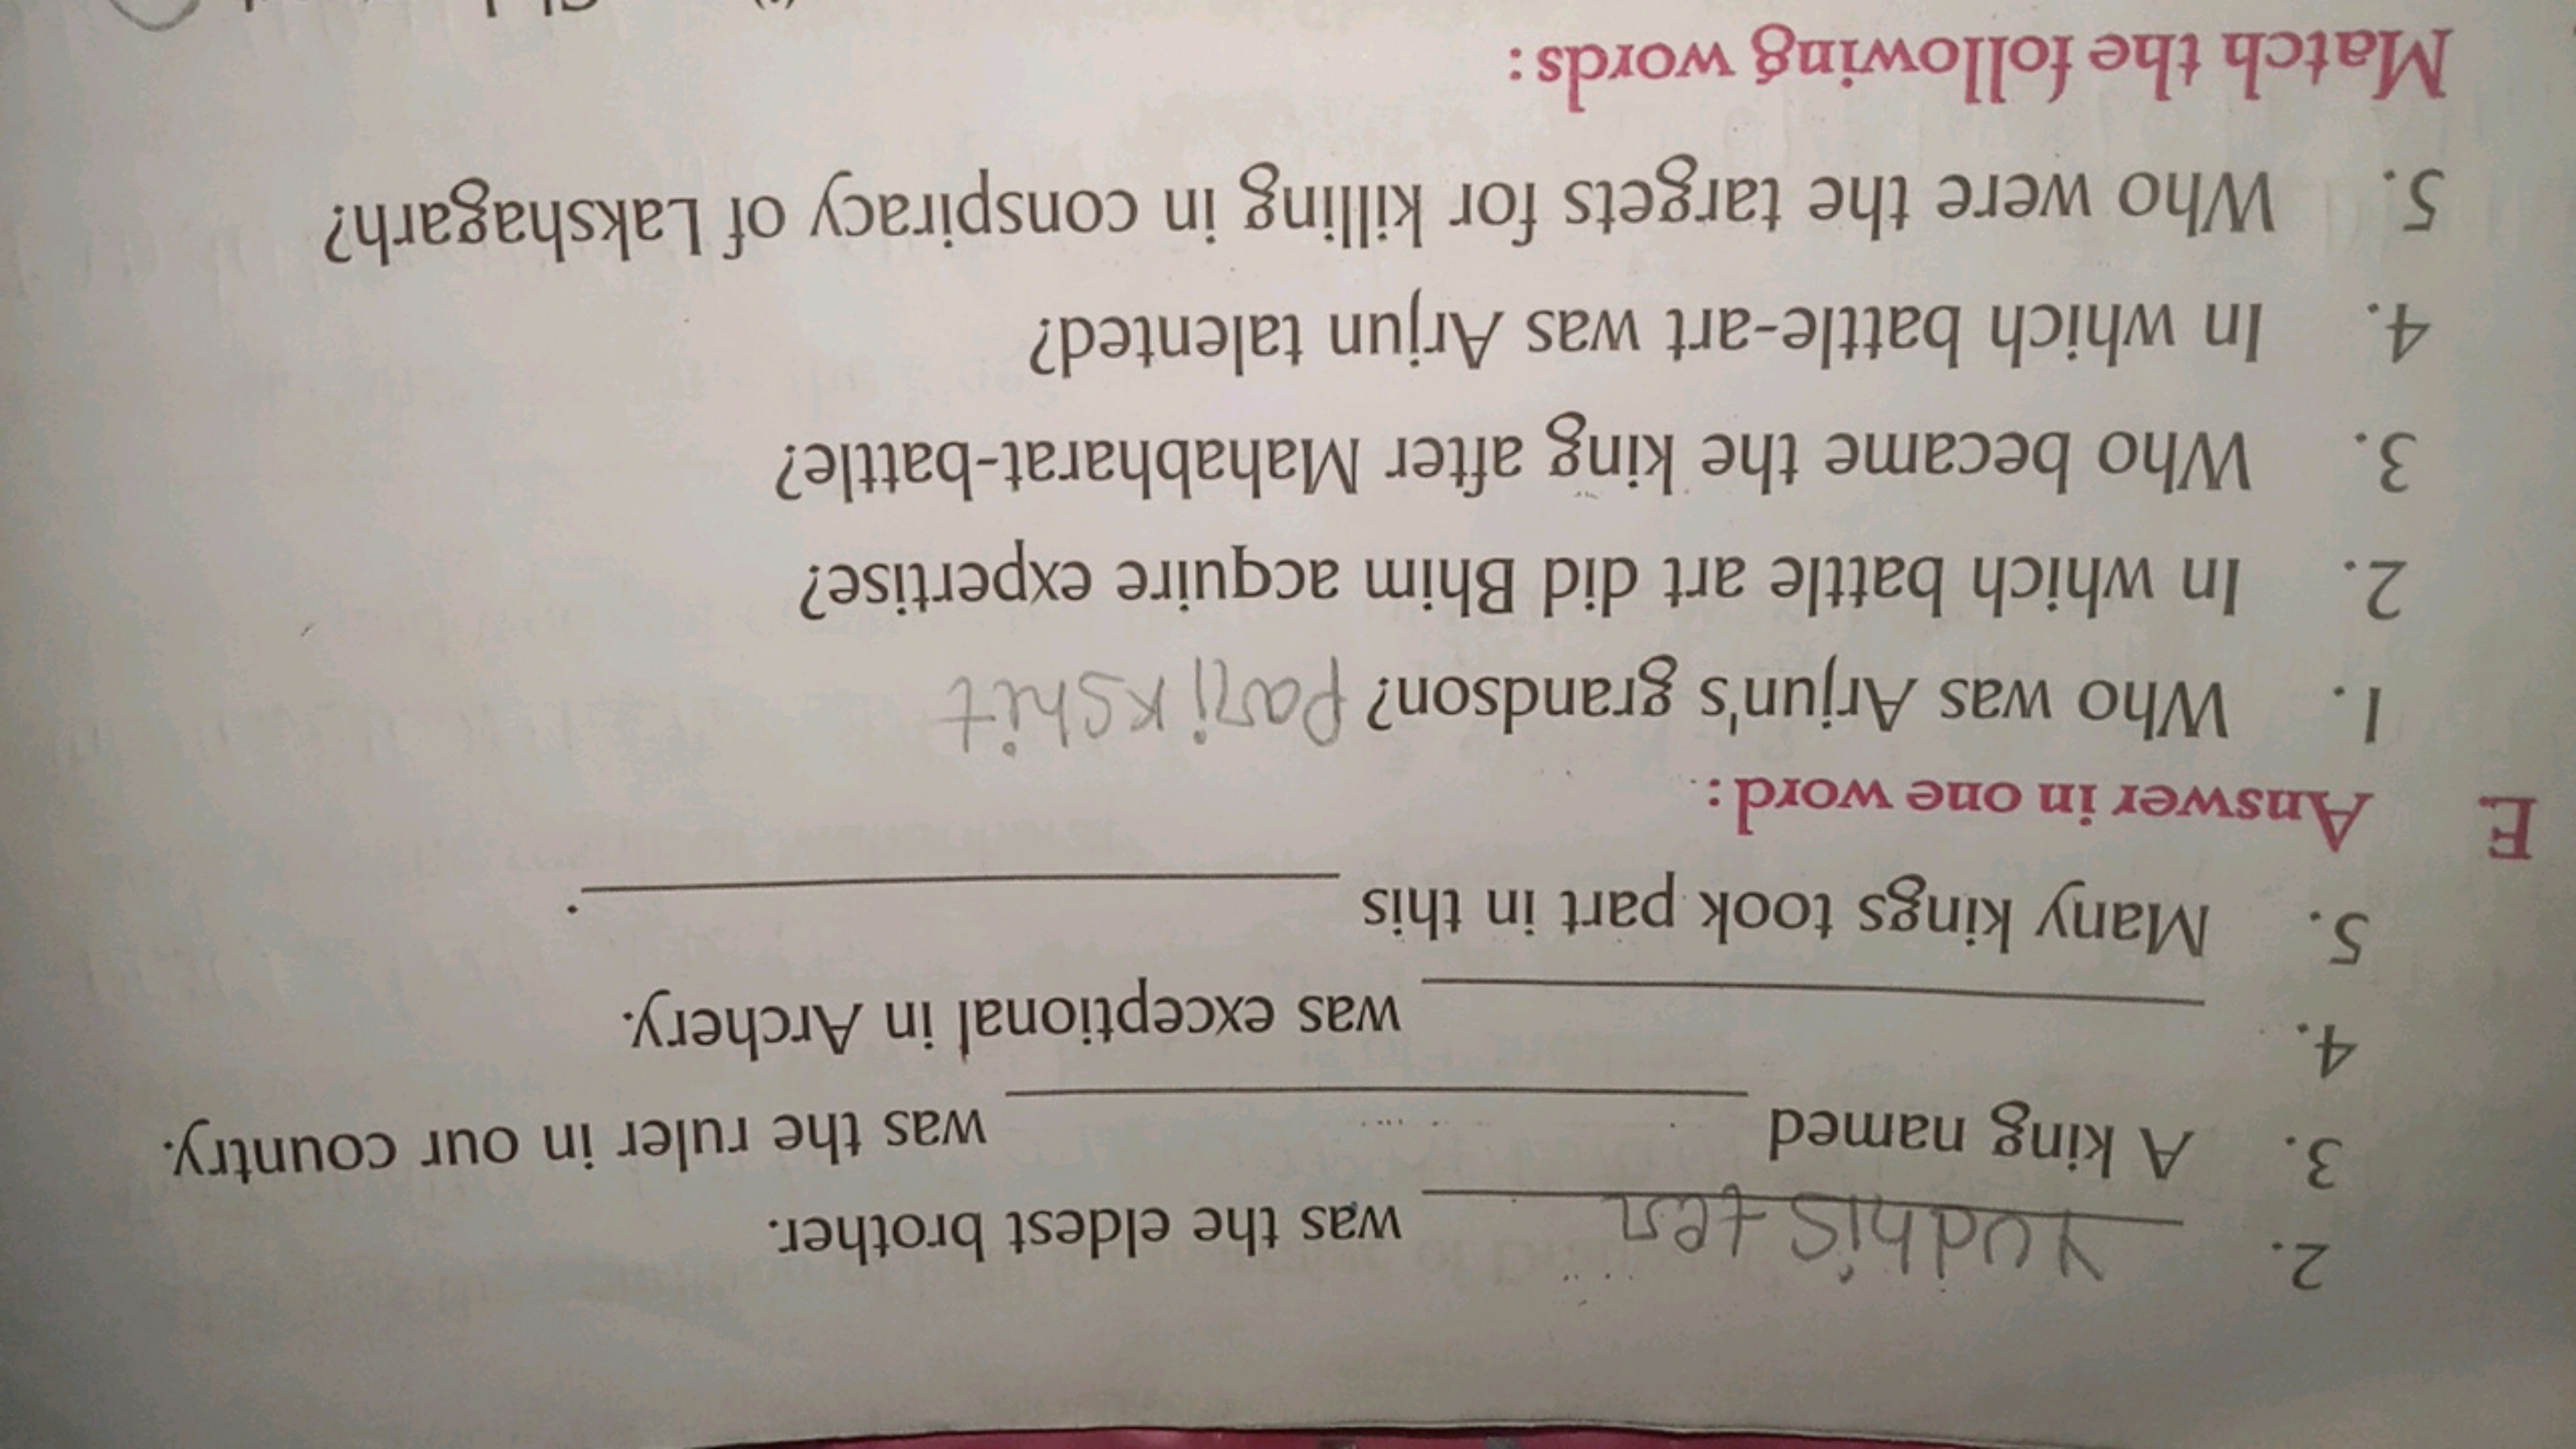 2. Yudhis ten was the eldest brother.
3. A king named ____________ was the ruler in our country.
4. ____________ was exceptional in Archery.
5. Many kings took part in this ____________.
E Answer in one word:
1. Who was Arjun's grandson? Parikshit
2. In which battle art did Bhim acquire expertise?
3. Who became the king after Mahabharat-battle?
4. In which battle-art was Arjun talented?
5. Who were the targets for killing in conspiracy of Lakshagarh?
Match the following words: